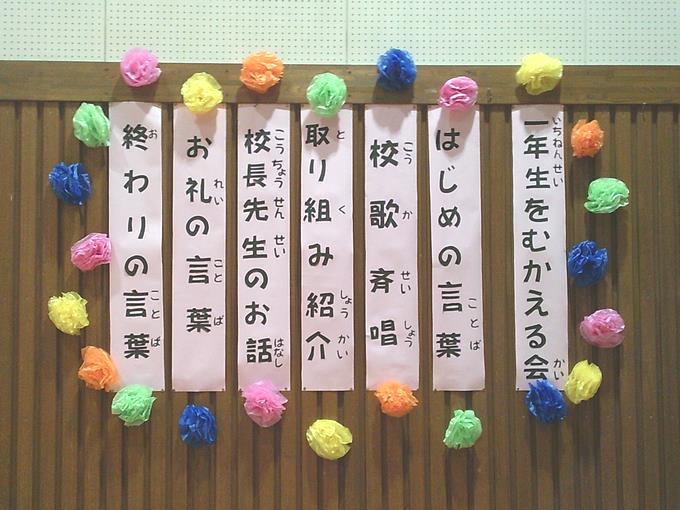 一年生をむかえる会
はじめの言葉
校歌斉唱
取り組み紹介
校長先生のお話
お礼の言葉
終わりの言葉